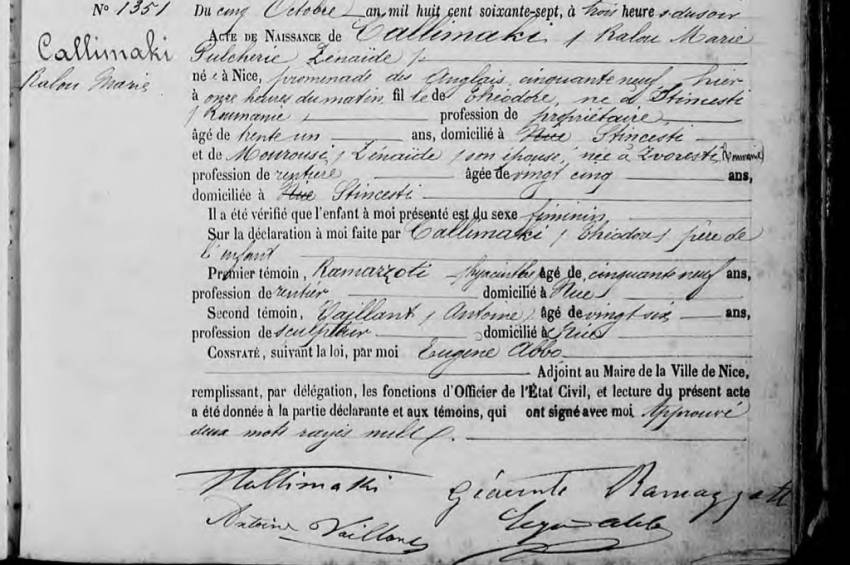 N° 1351
Callimaki
Ralou Marie
Du cinq Octobre an mil huit cent soixante-sept, à trois heures du soir
ACTE DE NAISSANCE de Callimaki (Ralou Marie
Pulchérie Zénaïde)
née à Nice, promenade des Anglais, cinquante neuf, hier
à onze heures du matin, fille de Théodore, né à Stincesti
(Roumanie) profession de propriétaire
âgé de trente un ans, domicilié à Nice Stincesti
et de Mourousi (Zénaïde) son épouse, née à Zvoresti (Roumanie)
profession de rentière âgée de vingt cinq ans,
domiciliée à Nice Stincesti
Il a été vérifié que l'enfant à moi présenté est du sexe féminin,
Sur la déclaration à moi faite par Callimaki (Théodore) père de
l'enfant
Premier témoin, Ramazzoti (hyacinthe) âgé de cinquante neuf ans,
profession de rentier domicilié à Nice
Second témoin, Vaillant (Antoine) âgé de vingt six ans,
profession de sculpteur domicilié à Nice
CONSTATÉ, suivant la loi, par moi Eugène Abbo
Adjoint au Maire de la Ville de Nice,
remplissant, par délégation, les fonctions d'Officier de l'État Civil, et lecture du présent acte
a été donnée à la partie déclarante et aux témoins, qui ont signé avec moi. Approuvé
deux mots rayés nuls.
Callimaki Ramazzotti
Antoine Vaillant